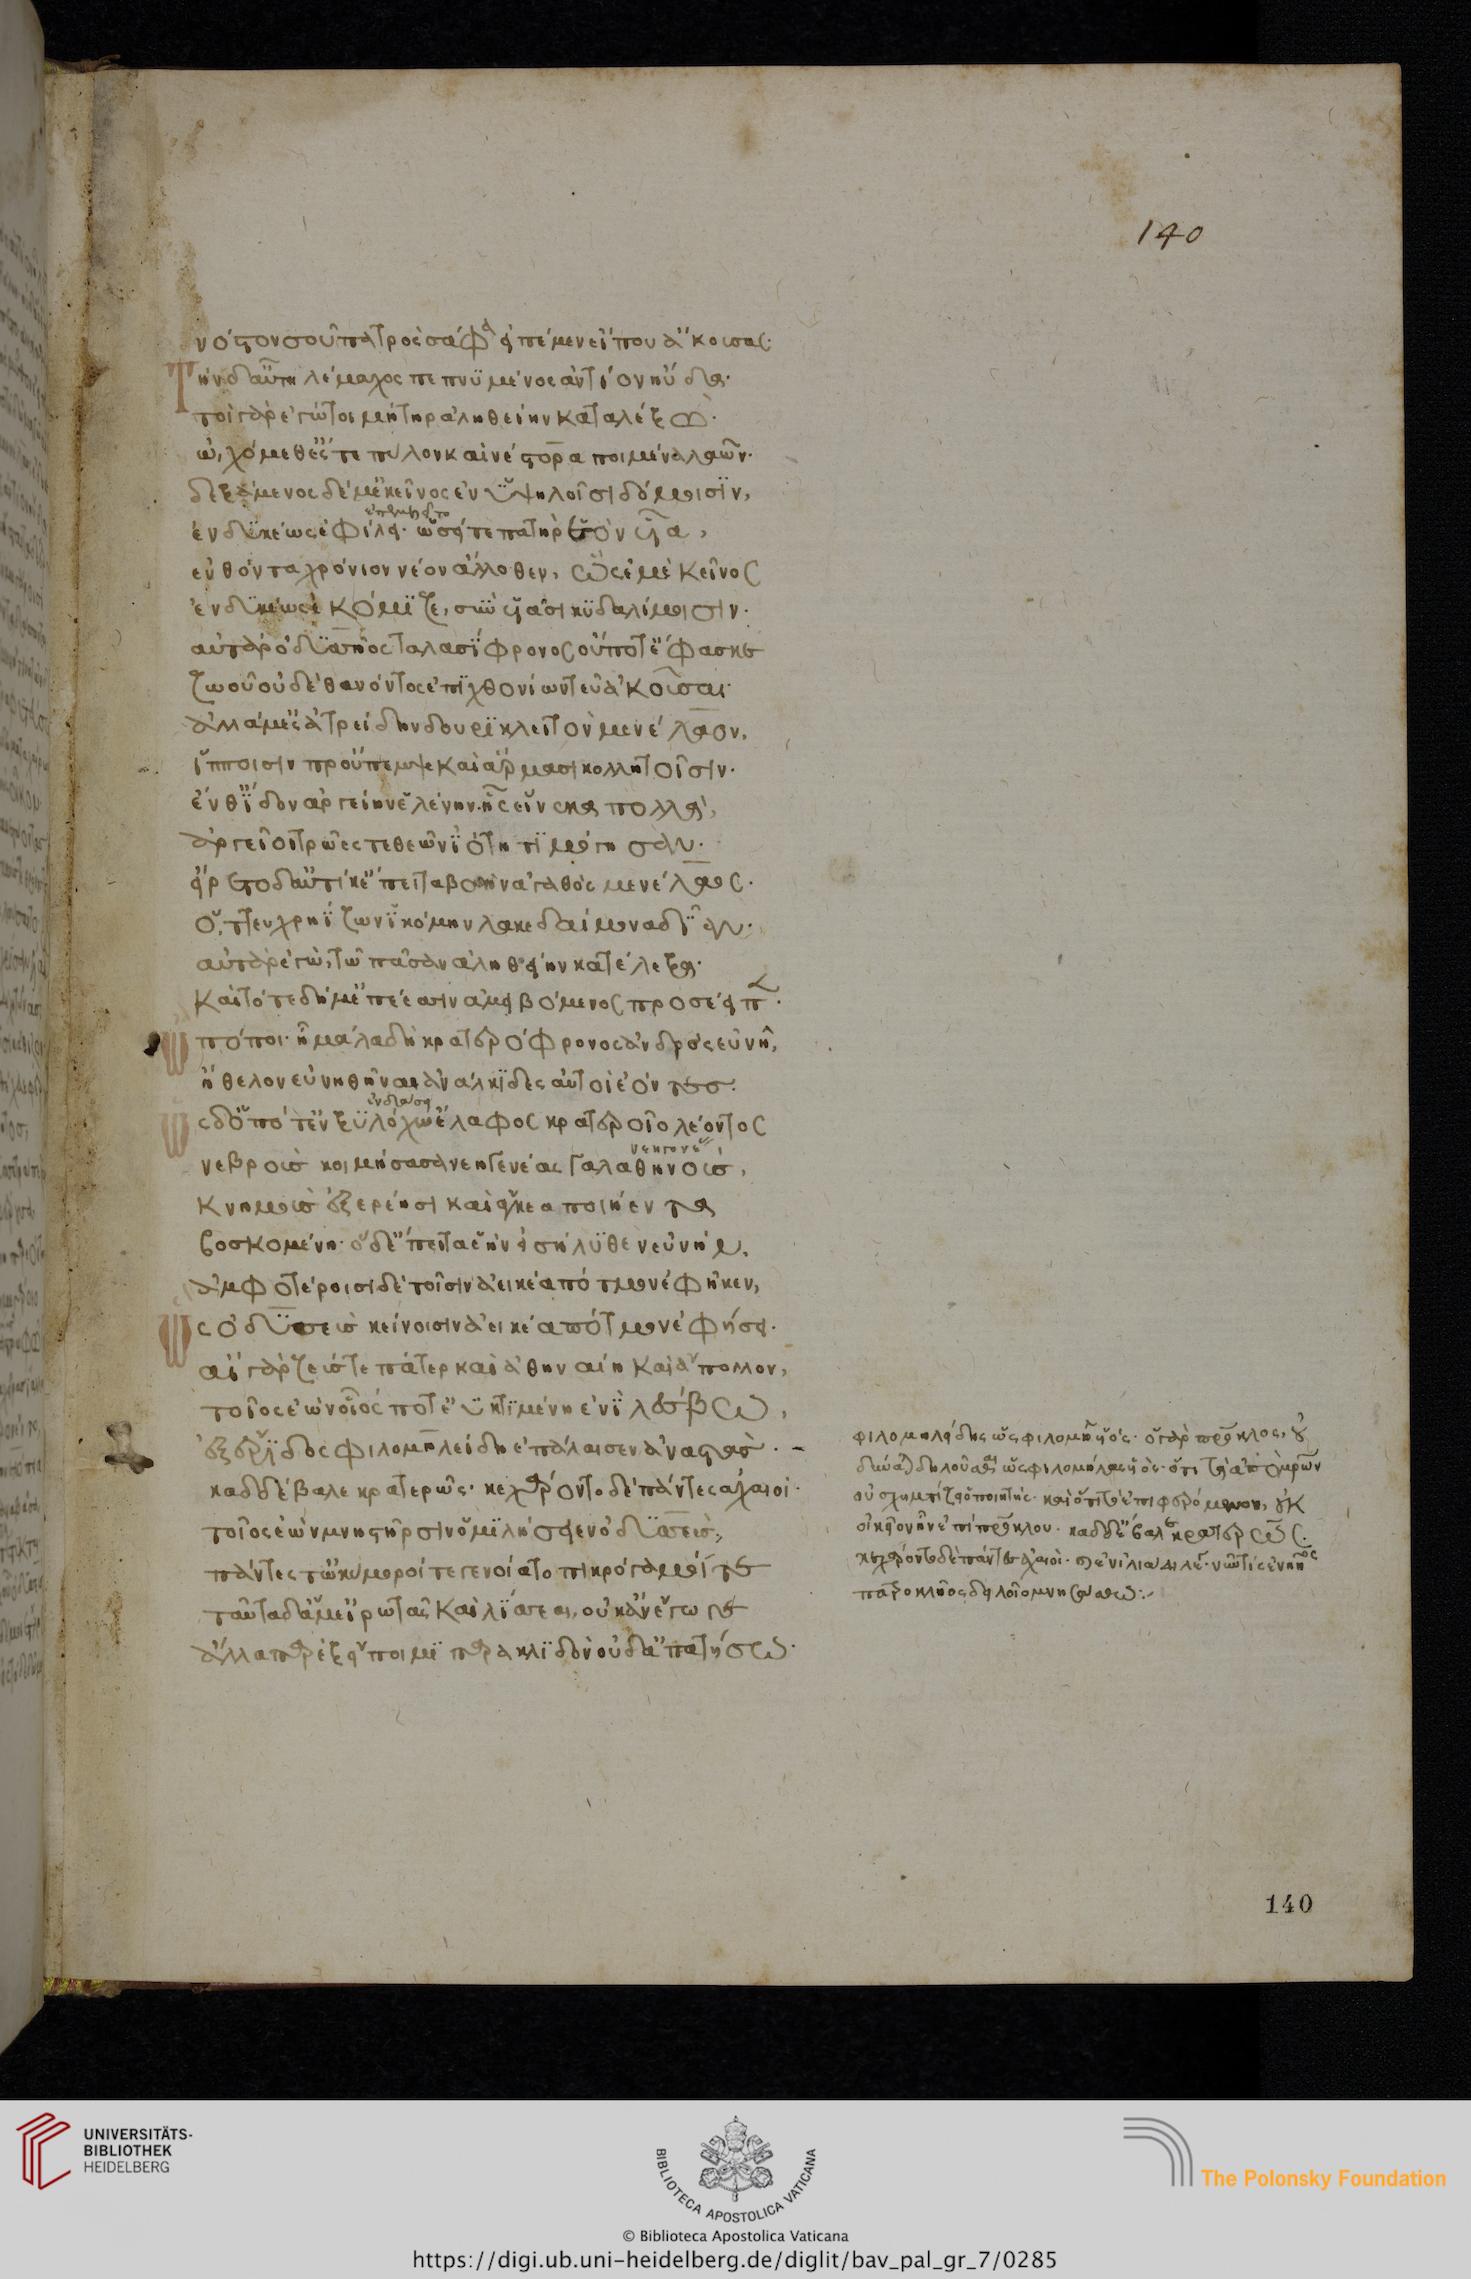 νόστον σοῦ πατρὸς σάφα εἰπέμεν εἴ που ἄκουσας·
Τὴν δ' αὖ τηλέμαχος πεπνυμένος ἀντίον ηὔδα·
τοὶ γὰρ ἐγώ τοι μῆτηρ ἀληθείην καταλέξω·
ᾠχόμεθ' ἔς τε πύλον καὶ νέστορα ποιμένα λαῶν·
δεξάμενος δέ με κεῖνος ἐν ὑψηλοῖσι δόμοισϊν,
ἐνδυκέως ἐφίλει· ὡσεί τε πατὴρ ἑὸν υἷα,
ἐλθόντα χρόνιον νέον ἄλλοθεν, ὣς ἐμὲ κεῖνος
ἐνδυκέως ἐκόμιζε, σὺν υἱάσι κυδαλίμοισιν·
αὐτὰρ ὀδυσσῆος ταλασίφρονος οὔ ποτ' ἔφασκε
ζωοῦ οὐδὲ θανόντος ἐπϊχθονίων τευ ἀκοῦσαι·
ἀλλά μ' ἐς ἀτρείδην δουρϊκλειτὸν μενέλαον,
ἵπποισιν προὔπεμψε καὶ ἅρμασι κολλητοῖσιν·
ἔνθ' ἴδον ἀργείην ἑλένην. ἧς εἵνεκα πολλὰ,
ἀργεῖοι τρῶες τε θεῶν ἰότητϊ μόγησαν·
εἴρετο δ' αὐτίκ' ἔπειτα βοὴν ἀγαθὸς μενέλαος·
ὅττευ χρηΐζων ἱκόμην λακεδαίμονα δῖαν·
αὐτὰρ ἐγὼ, τῷ πᾶσαν ἀληθείην κατέλεξα·
καὶ τότε δή μ' ἐπέεσσιν ἀμειβόμενος προσέειπεν·
Ὦ πόποι· ἦ μάλα δὴ κρατερόφρονος ἀνδρὸς εὐνῇ,
ἤθελον εὐνηθῆναι ἀνάλκϊδες αὐτοὶ ἐόντες·
Ὡς δ' ὁπότ' ἐν ξυλόχῳ ἔλαφος κρατεροῖο λέοντος
νεβροὺς κοιμήσασα νεηγενέας γαλαθηνοὺς,
κνημοὺς ἐξερέησι καὶ ἄγκεα ποιήεντα
βοσκομένη· ὁ δ' ἔπειτα ἑὴν εἰσήλυθεν εὐνήν.
ἀμφοτέροισι δὲ τοῖσιν ἀεικέα πότμον ἐφῆκεν,
Ὣς ὀδυσσεὺς κείνοισιν ἀεικέα πότμον ἐφήσει·
αἲ γὰρ ζεῦ τε πάτερ καὶ ἀθηναίη καὶ ἄπολλον,
τοῖος ἐὼν οἷός ποτ' ἐϋκτϊμένη ἐνὶ λέσβω,
ἐξ ἔρϊδος φιλομηλείδη ἐπάλαισεν ἀναστὰς·
καδδέβαλε κρατερῶς· κεχάροντο δὲ πάντες ἀχαιοί·
τοῖος ἐὼν μνηστῆρσιν ὁμϊλήσειεν ὀδυσσεὺς,
πάντες τ' ὠκύμοροί τε γενοίατο πικρόγαμοί τε
ταῦτα δ' ἅ μ' εἰρωτᾷς καὶ λίσσεαι, οὐκ ἂν ἔγωγε
ἄλλα παρὲξ εἴποιμϊ παρακλϊδὸν οὐδ' ἀπατήσω·
φιλομηλείδης ὡς φιλομήλας υἱός·
οὐ σχηματίζει ὁ ποιητής· καὶ ὅτι τὸ ἐπιφερόμενον, οὐκ
οἰκεῖον ἦν ἐπὶ πατρόκλου· καδδ' ἔβαλε κρατερῶς.
κεχάροντο δὲ πάντες ἀχαιοί·
πατροκλῆος δειλοῖο μνησάσθω:
140
140
UNIVERSITÄTS-
BIBLIOTHEK
HEIDELBERG
BIBLIOTECA APOSTOLICA VATICANA
The Polonsky Foundation
© Biblioteca Apostolica Vaticana
https://digi.ub.uni-heidelberg.de/diglit/bav_pal_gr_7/0285